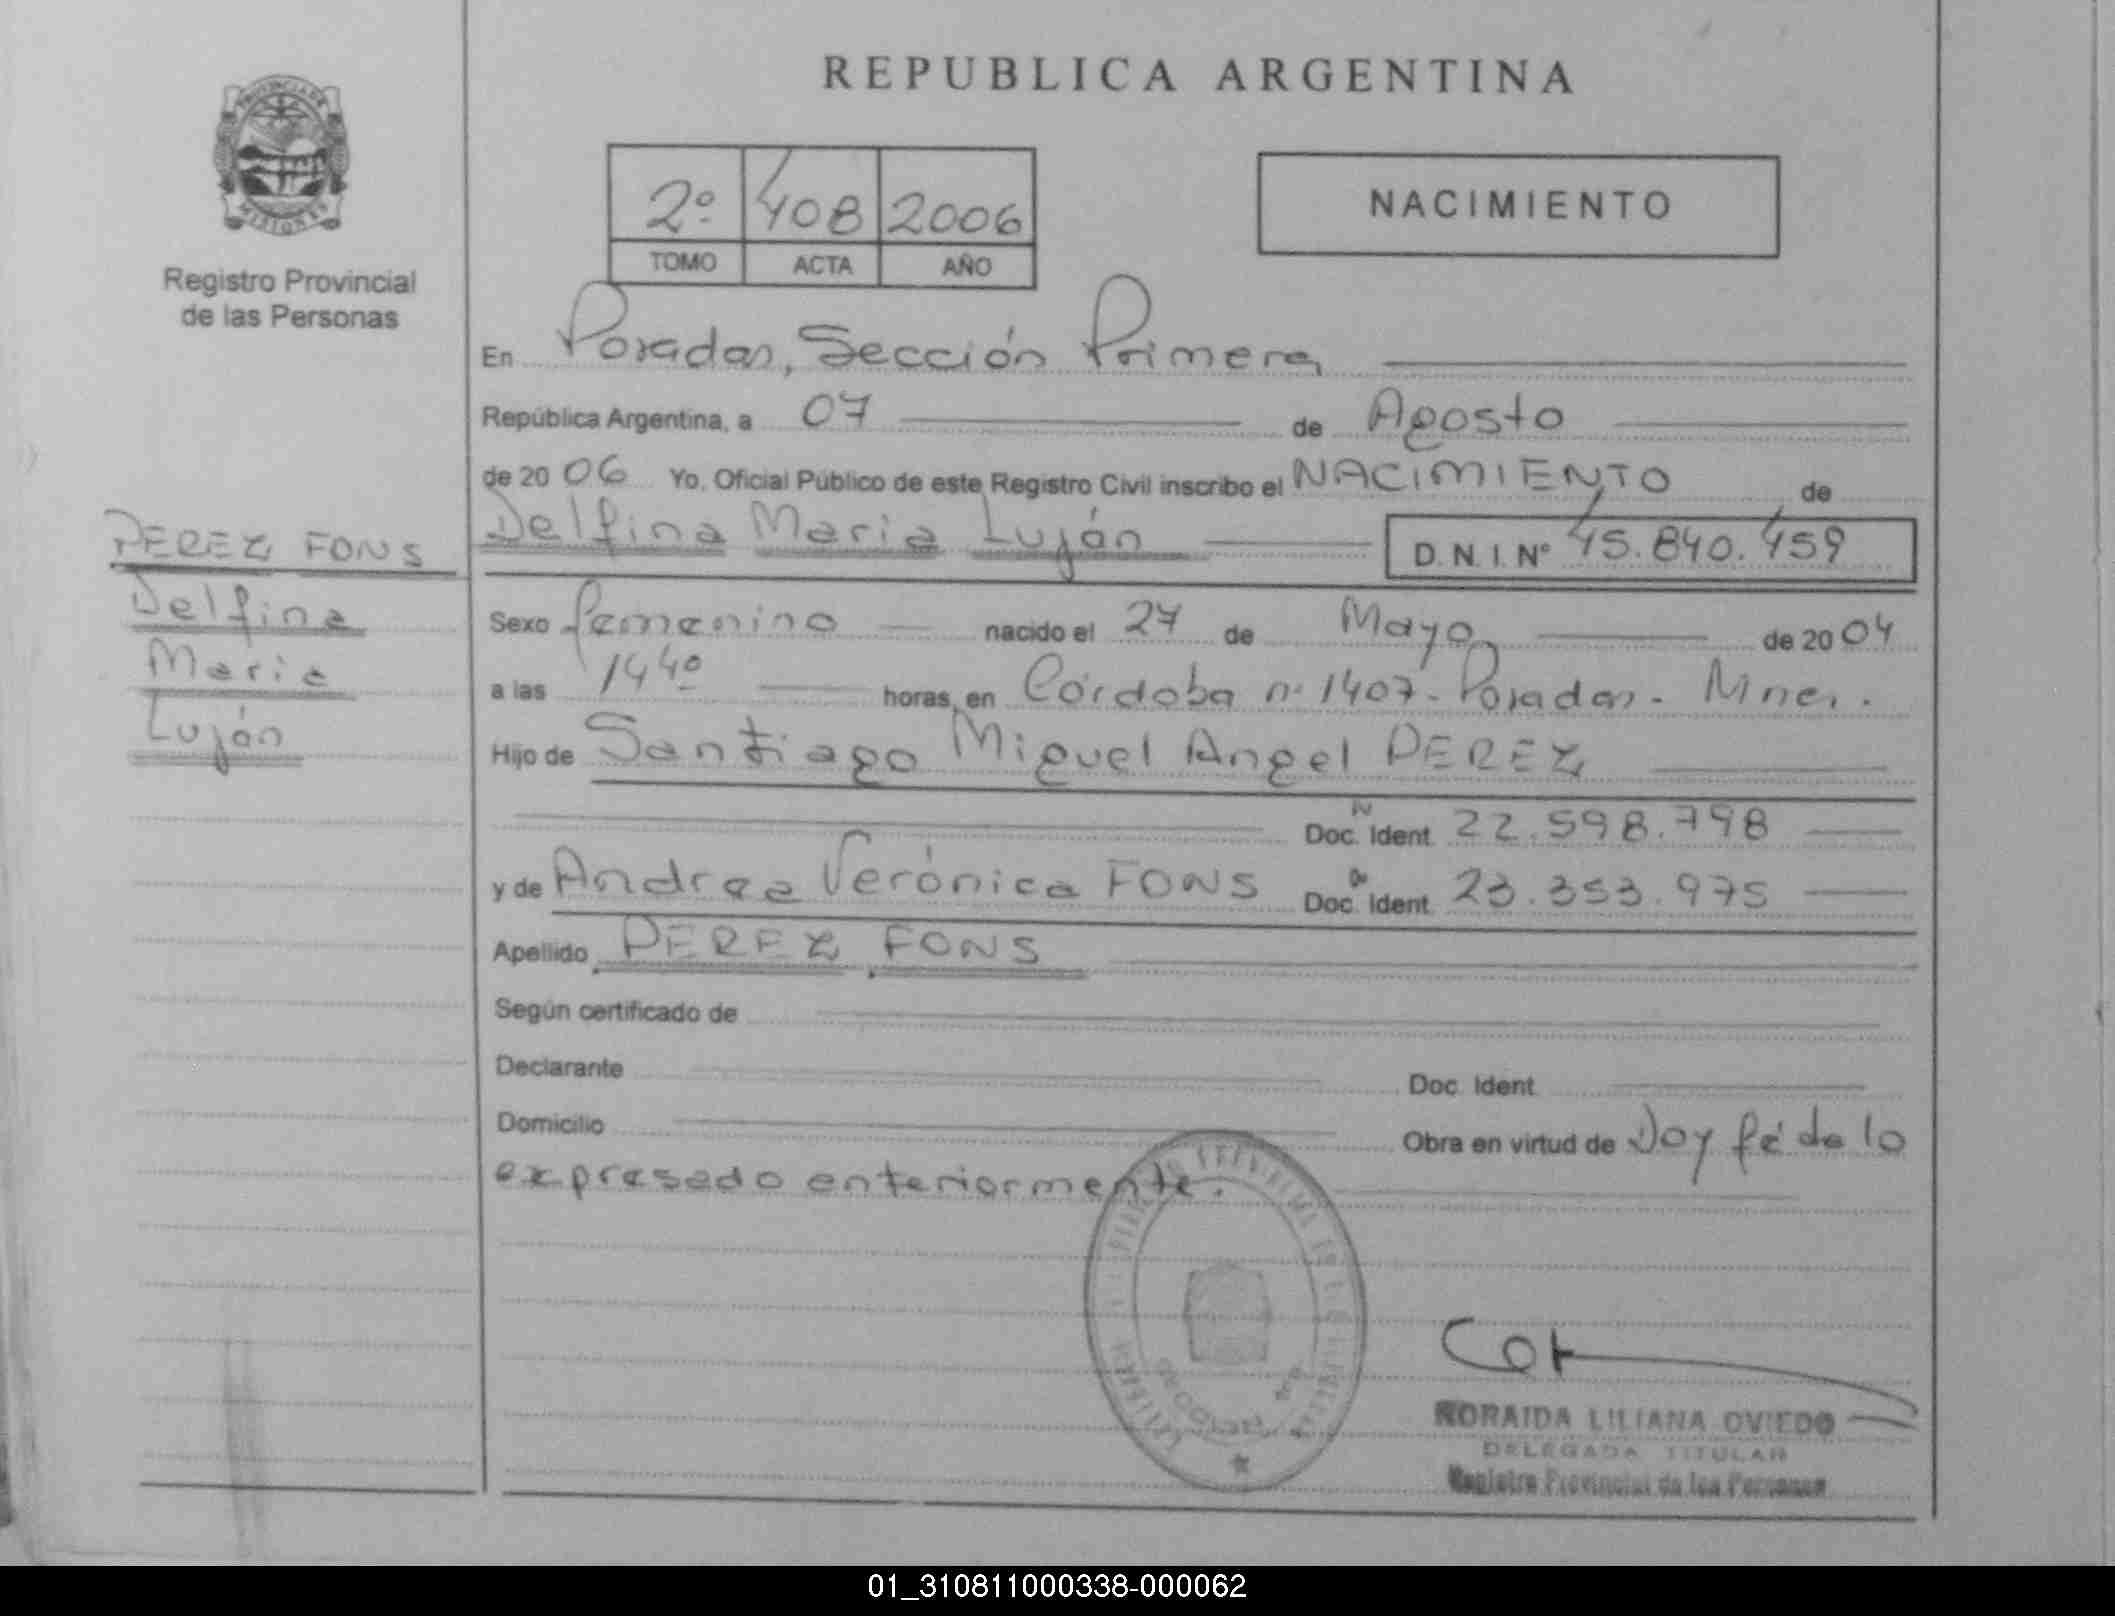 REPUBLICA ARGENTINA
PROVINCIA DE
MISIONES
Registro Provincial
de las Personas
2º 408 2006
TOMO ACTA AÑO
NACIMIENTO
En Posadas, Sección Primera
República Argentina, a 07 de Agosto
de 20 06 Yo, Oficial Público de este Registro Civil inscribo el NACIMIENTO de
Delfina Maria Luján D.N.I.Nº 45.840.459
PEREZ FONS
Delfina
Maria
Luján
Sexo femenino nacido el 27 de Mayo de 20 04
a las 14 40 horas, en Córdoba nº 1407 - Posadas - Mnes.
Hijo de Santiago Miguel Angel PEREZ
Doc. Ident. 22.598.798
y de Andrea Verónica FONS Doc. Ident. 23.353.975
Apellido PEREZ FONS
Según certificado de
Declarante Doc. Ident.
Domicilio Obra en virtud de Doy fé de lo
expresado anteriormente.
NORAIDA LILIANA OVIEDO
DELEGADA TITULAR
Registro Provincial de las Personas
01_310811000338-000062